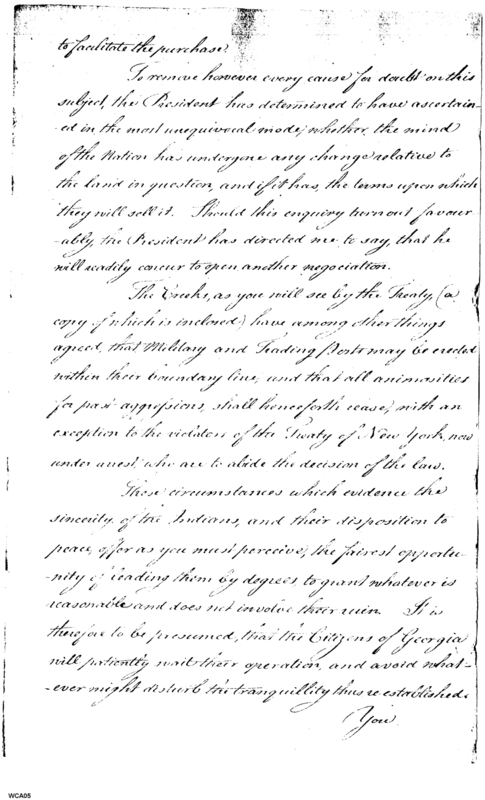 to facilitate the purchase.
To remove however every cause for doubt on this
subject, the President has determined to have ascertain-
ed in the most unequivocal mode, whether the mind
of the Nation has undergone any change relative to
the land in question, and if it has, the terms upon which
they will sell it. Should this enquiry turn out favour
-ably, the President has directed me to say, that he
will readily concur to open another negociation.
The Creeks, as you will see by the Treaty, (a
copy of which is inclosed) have among other things
agreed, that Military and Trading Posts may be erected
within their boundary line, and that all animosities
for past aggressions, shall henceforth cease, with an
exception to the violators of the Treaty of New York, now
under arrest, who are to abide the decision of the law.
These circumstances which evidence the
sincerity of the Indians, and their disposition to
peace, offer as you must perceive, the fairest opportu-
nity of leading them by degrees, to grant whatever is
reasonable and does not involve their ruin. It is
therefore to be presumed, that the Citizens of Georgia
will patiently wait their operation, and avoid what-
-ever might disturb the tranquillity thus re established.
You
WCA05